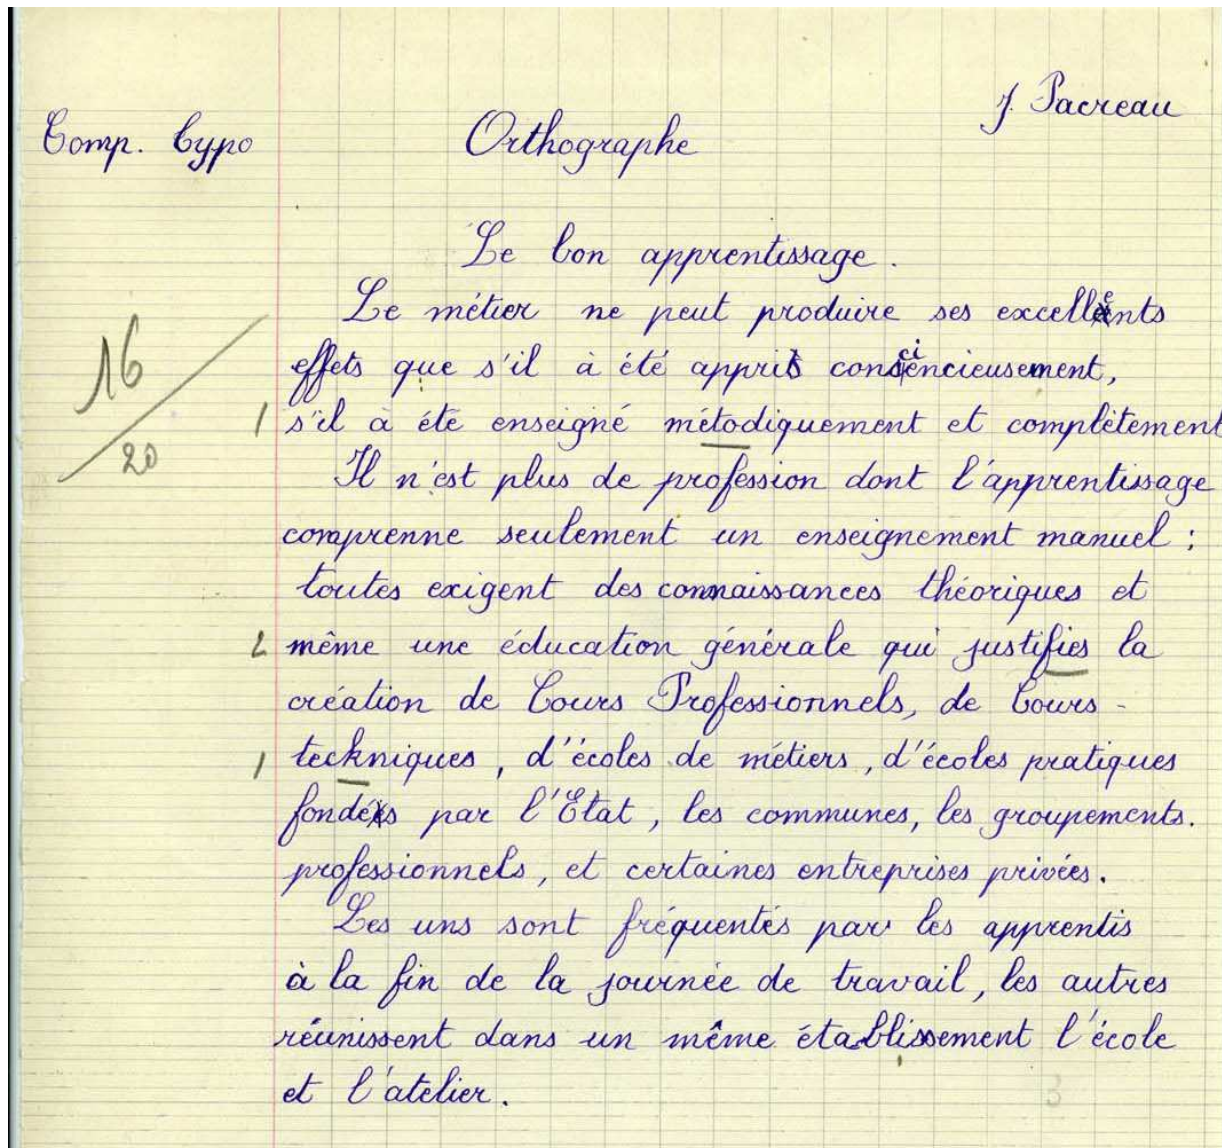 J. Pacreau
Comp. Typo
Orthographe
Le bon apprentissage.
Le métier ne peut produire ses excellents
effets que s'il à été appris consciencieusement,
16
20
1 s'il à été enseigné métodiquement et complètement
Il n'est plus de profession dont l'apprentissage
comprenne seulement un enseignement manuel :
toutes exigent des connaissances théoriques et
2 même une éducation générale qui justifies la
création de Cours Professionnels, de Cours -
1 teckniques, d'écoles de métiers, d'écoles pratiques
fondés par l'Etat, les communes, les groupements.
professionnels, et certaines entreprises privées.
Les uns sont fréquentés par les apprentis
à la fin de la journée de travail, les autres
réunissent dans un même établissement l'école
et l'atelier.